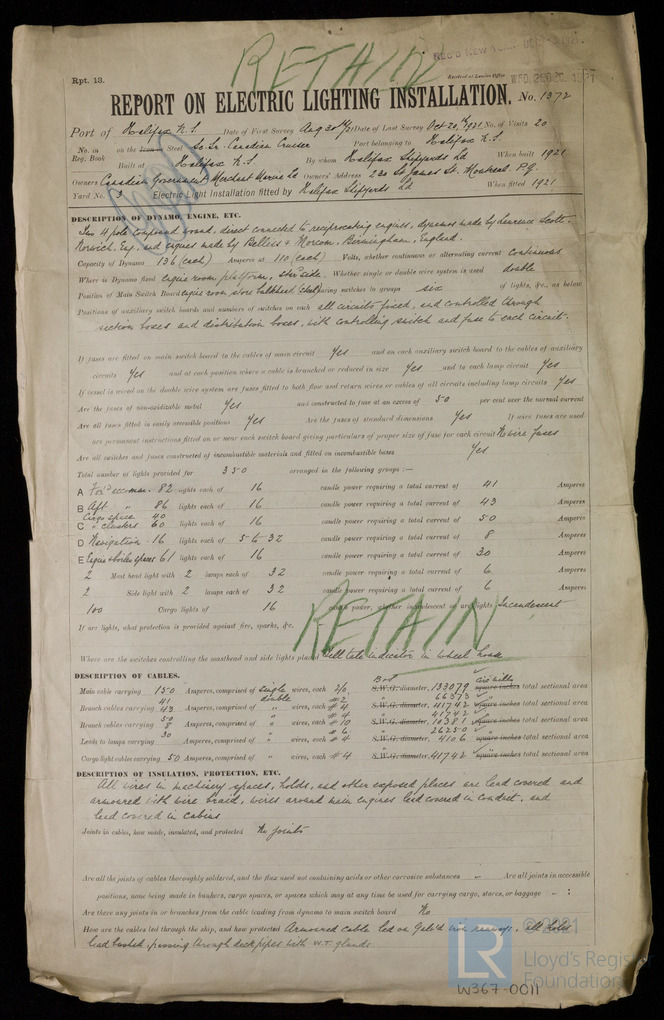 RETAIN
REC'D NEW YORK OCT 1921
Rpt. 13.
Received at London Office WED. DEC 20 1921
REPORT ON ELECTRIC LIGHTING INSTALLATION. No. 1372
Port of Halifax N.S. Date of First Survey Aug 30th/21 Date of Last Survey Oct 20th 1921 No. of Visits 20
No. in Reg. Book on the Iron or Steel Sc. Sr. Canadian Cruiser Port belonging to Halifax N.S.
Built at Halifax N.S. By whom Halifax Shipyards Ld When built 1921
Owners Canadian Government Merchant Marine Ld Owners' Address 230 St James St. Montreal P.Q.
Yard No. 3 Electric Light Installation fitted by Halifax Shipyards Ld When fitted 1921
DESCRIPTION OF DYNAMO, ENGINE, ETC.
Two 4 pole compound wound, direct connected to reciprocating engines, dynamos made by Laurence Scott.
Norwich, Eng. and engines made by Belliss & Morcom, Birmingham, England.
Capacity of Dynamo 136 (each) Amperes at 110 (each) Volts, whether continuous or alternating current continuous
Where is Dynamo fixed engine room platform, star'd side. Whether single or double wire system is used double
Position of Main Switch Board engine room store bulkhead having switches to groups six of lights, &c., as below
Positions of auxiliary switch boards and numbers of switches on each all circuits fused, and controlled through
section boxes and distribution boxes, with controlling switch and fuse to each circuit.
If fuses are fitted on main switch board to the cables of main circuit Yes and on each auxiliary switch board to the cables of auxiliary
circuits Yes and at each position where a cable is branched or reduced in size Yes and to each lamp circuit Yes
If vessel is wired on the double wire system are fuses fitted to both flow and return wires or cables of all circuits including lamp circuits Yes
Are the fuses of non-oxidizable metal Yes and constructed to fuse at an excess of 50 per cent over the normal current
Are all fuses fitted in easily accessible positions Yes Are the fuses of standard dimensions Yes If wire fuses are used
are permanent instructions fitted on or near each switch board giving particulars of proper size of fuse for each circuit No wire fuses
Are all switches and fuses constructed of incombustible materials and fitted on incombustible bases Yes
Total number of lights provided for 350 arranged in the following groups :—
A For'd accmn. 82 lights each of 16 candle power requiring a total current of 41 Amperes
B Aft " 86 lights each of 16 candle power requiring a total current of 43 Amperes
Cargo space 40
C " clusters 60 lights each of 16 candle power requiring a total current of 50 Amperes
D Navigation 16 lights each of 5 to 32 candle power requiring a total current of 8 Amperes
E Engine & boiler spaces 61 lights each of 16 candle power requiring a total current of 30 Amperes
2 Mast head light with 2 lamps each of 32 candle power requiring a total current of 6 Amperes
2 Side light with 2 lamps each of 32 candle power requiring a total current of 6 Amperes
100 Cargo lights of 16 candle power, whether incandescent or arc lights Incandescent
RETAIN
If arc lights, what protection is provided against fire, sparks, &c. -
Where are the switches controlling the masthead and side lights placed Tell tale indicator in Wheel house
DESCRIPTION OF CABLES.
B&S cir mills
Main cable carrying 150 Amperes, comprised of single wires, each 2/0 S.W.G. diameter, 133079 square inches total sectional area
41 double #2 66373
Branch cables carrying 43 Amperes, comprised of " wires, each #4 S.W.G. diameter, 41742 square inches total sectional area
50 " #4 41742
Branch cables carrying 8 Amperes, comprised of " wires, each #10 S.W.G. diameter, 10381 square inches total sectional area
30 " #6 26250
Leads to lamps carrying Amperes, comprised of " wires, each S.W.G. diameter, 4106 square inches total sectional area
Cargo light cables carrying 50 Amperes, comprised of " wires, each #4 S.W.G. diameter, 41742 square inches total sectional area
DESCRIPTION OF INSULATION, PROTECTION, ETC.
All wires in machinery spaces, holds, and other exposed places are lead covered and
armoured with wire braid, wires around main engines lead covered in conduit, and
lead covered in cabins
Joints in cables, how made, insulated, and protected No joints
Are all the joints of cables thoroughly soldered, and the flux used not containing acids or other corrosive substances " Are all joints in accessible
positions, none being made in bunkers, cargo spaces, or spaces which may at any time be used for carrying cargo, stores, or baggage "
Are there any joints in or branches from the cable leading from dynamo to main switch board No
How are the cables led through the ship, and how protected Armoured cable led on Galv'd iron runways, all holes
lead bushed, passing through deck pipes with W.T. glands.
© 2021
LR
Lloyd's Register
Foundation
W367-0011